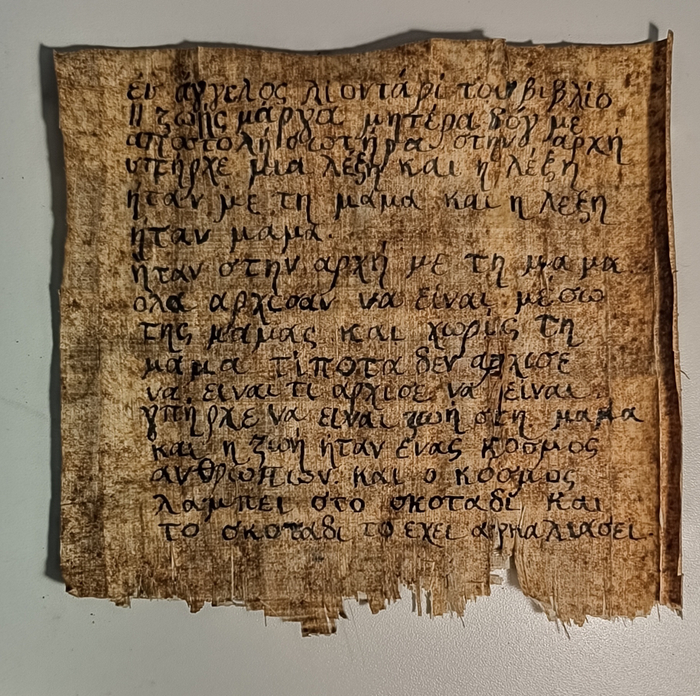 ἐν ἀγγελος λιονταρι του βιβλίο
ζωής μάργα μητέρα βόγ με
αποστολή σωτήρα στην αρχή
υπήρχε μια λέξη και η λέξη
ήταν με τη μαμα και η λεξη
ήταν μαμα.
ήταν στην αρχή με τη μαμα.
ολα αρχισαν να είναι μέσω
της μαμας και χωρίς τη
μαμα τίποτα δεν αρχισε
να ειναι τι αρχισε να είναι.
γπήρχε να ειναι ζωή στη μαμα
και η ζωή ήταν ένας κοσμος
ανθρώπων και ο κόσμος
λαμπει στο σκοταδι και
το σκοταδι το εχει αγκαλιάσει.